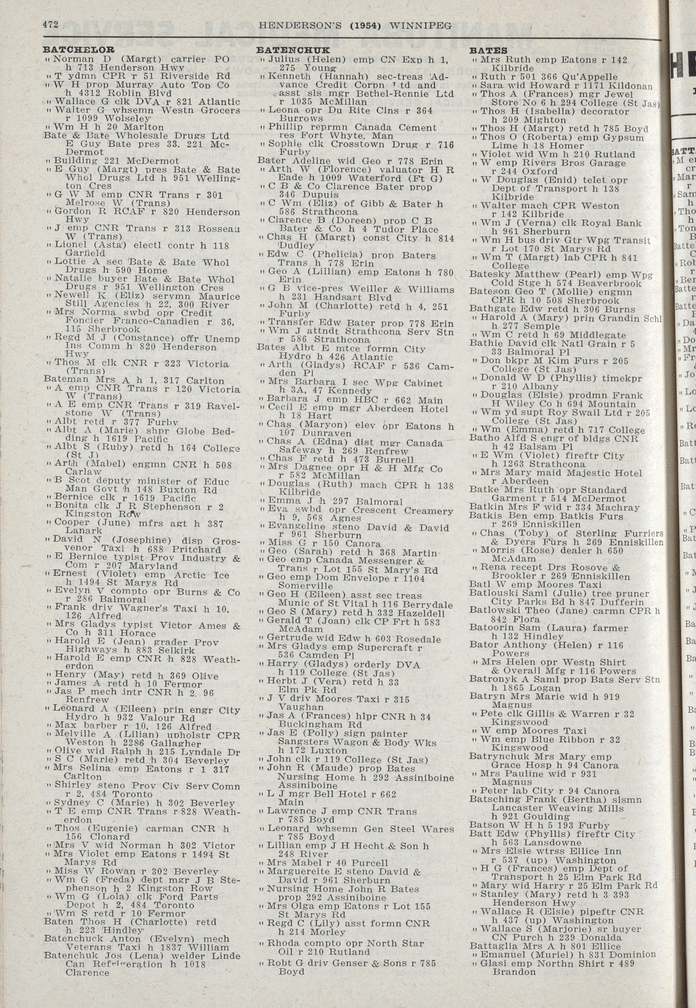 472
HENDERSON'S (1954) WINNIPEG
BATCHELOR
" Norman D (Margt) carrier PO
h 713 Henderson Hwy
" T ydmn CPR r 51 Riverside Rd
" W H prop Murray Auto Top Co
h 4312 Roblin Blvd
" Wallace G clk DVA r 821 Atlantic
" Walter G whsemn Westn Grocers
r 1099 Wolseley
" Wm H h 20 Marlton
Bate & Bate Wholesale Drugs Ltd
E Guy Bate pres 33, 221 Mc-
Dermot
" Building 221 McDermot
" E Guy (Margt) pres Bate & Bate
Whol Drugs Ltd h 951 Welling-
ton Cres
" G W M emp CNR Trans r 301
Melrose W (Trans)
" Gordon R RCAF r 820 Henderson
Hwy
" J emp CNR Trans r 313 Rosseau
W (Trans)
" Lionel (Asta) electl contr h 118
Garfield
" Lottie A sec Bate & Bate Whol
Drugs h 590 Home
" Natalie buyer Bate & Bate Whol
Drugs r 951 Wellington Cres
" Newell K (Eliz) servmn Maurice
Still Agencies h 22, 300 River
" Mrs Norma swbd opr Credit
Foncier Franco-Canadien r 36,
115 Sherbrook
" Regd M J (Constance) offr Unemp
Ins Comm h 820 Henderson
Hwy
" Thos M clk CNR r 323 Victoria
(Trans)
Bateman Mrs A h 1, 317 Carlton
" A emp CNR Trans r 120 Victoria
W (Trans)
" A E emp CNR Trans r 319 Ravel-
stone W (Trans)
" Albt retd r 377 Furby
" Albt A (Marie) shpr Globe Bed-
ding h 1619 Pacific
" Albt S (Ruby) retd h 164 College
(St J)
" Arth (Mabel) engmn CNR h 508
Carlaw
" B Scot deputy minister of Educ
Man Govt h 148 Buxton Rd
" Bernice clk r 1619 Pacific
" Bonita clk J R Stephenson r 2
Kingston Row
" Cooper (June) mfrs agt h 387
Lanark
" David N (Josephine) disp Gros-
venor Taxi h 688 Pritchard
" E Bernice typist Prov Industry &
Com r 207 Maryland
" Ernest (Violet) emp Arctic Ice
h 1494 St Marys Rd
" Evelyn V compto opr Burns & Co
r 286 Balmoral
" Frank driv Wagner's Taxi h 10,
126 Alfred
" Mrs Gladys typist Victor Ames &
Co h 311 Horace
" Harold E (Jean) grader Prov
Highways h 883 Selkirk
" Harold E emp CNR h 828 Weath-
erdon
" Henry (May) retd h 369 Olive
" James A retd h 10 Fermor
" Jas P mech intr CNR h 2, 96
Renfrew
" Leonard A (Eileen) prin engr City
Hydro h 932 Valour Rd
" Max barber r 10, 126 Alfred
" Melville A (Lilian) upholstr CPR
Weston h 2286 Gallagher
" Olive wid Ralph h 215 Lyndale Dr
" S C (Marie) retd h 304 Beverley
" Mrs Selina emp Eatons r 1 317
Carlton
" Shirley steno Prov Civ Serv Comn
r 2, 484 Toronto
" Sydney C (Marie) h 302 Beverley
" T E emp CNR Trans r 828 Weath-
erdon
" Thos (Eugenie) carman CNR h
156 Clonard
" Mrs V wid Norman h 302 Victor
" Mrs Violet emp Eatons r 1494 St
Marys Rd
" Miss W Rowan r 302 Beverley
" Wm G (Freda) dept mgr J B Ste-
phenson h 2 Kingston Row
" Wm G (Lola) clk Ford Parts
Depot h 2, 484 Toronto
" Wm S retd r 10 Fermor
Baten Thos H (Charlotte) retd
h 223 Hindley
Batenchuck Anton (Evelyn) mech
Veterans Taxi h 1837 William
Batenchuk Jos (Lena) welder Linde
Can Refrigeration h 1018
Clarence
BATENCHUK
" Julius (Helen) emp CN Exp h 1,
275 Young
" Kenneth (Hannah) sec-treas Ad-
vance Credit Corpn Ltd and
asst sls mgr Bethel-Rennie Ltd
r 1035 McMillan
" Leona opr Du Rite Clns r 364
Burrows
" Phillip reprmn Canada Cement
res Fort Whyte, Man
" Sophie clk Crosstown Drug r 716
Furby
Bater Adeline wid Geo r 778 Erin
" Arth W (Florence) valuator H R
Eade h 1009 Waterford (Ft G)
" C B & Co Clarence Bater prop
346 Dupuis
" C Wm (Eliz) of Gibb & Bater h
586 Strathcona
" Clarence B (Doreen) prop C B
Bater & Co h 4 Tudor Place
" Chas H (Margt) const City h 814
Dudley
" Edw C (Phelicia) prop Baters
Trans h 778 Erin
" Geo A (Lillian) emp Eatons h 780
Erin
" G B vice-pres Weiller & Williams
h 231 Handsart Blvd
" John M (Charlotte) retd h 4, 251
Furby
" Transfer Edw Bater prop 778 Erin
" Wm J attndt Strathcona Serv Stn
r 586 Strathcona
Bates Albt E mtce formn City
Hydro h 426 Atlantic
" Arth (Gladys) RCAF r 536 Cam-
den Pl
" Mrs Barbara I sec Wpg Cabinet
h 3A, 47 Kennedy
" Barbara J emp HBC r 662 Main
" Cecil E emp mgr Aberdeen Hotel
h 18 Hart
" Chas (Maryon) elev opr Eatons h
107 Dunraven
" Chas A (Edna) dist mgr Canada
Safeway h 269 Renfrew
" Chas F retd h 473 Burnell
" Mrs Dagnee opr H & H Mfg Co
r 582 McMillan
" Douglas (Ruth) mach CPR h 138
Kilbride
" Emma J h 297 Balmoral
" Eva swbd opr Crescent Creamery
h 9, 568 Agnes
" Evangeline steno David & David
r 961 Sherburn
" Miss G r 150 Canora
" Geo (Sarah) retd h 368 Martin
" Geo emp Canada Messenger &
Trans r Lot 155 St Mary's Rd
" Geo emp Dom Envelope r 1104
Somerville
" Geo H (Eileen) asst sec treas
Munic of St Vital h 116 Berrydale
" Geo S (Mary) retd h 332 Hazeldell
" Gerald T (Joan) clk CP Frt h 583
McAdam
" Gertrude wid Edw h 603 Rosedale
" Mrs Gladys emp Supercraft r
536 Camden Pl
" Harry (Gladys) orderly DVA
h 119 College (St Jas)
" Herbt J (Vera) retd h 33
Elm Pk Rd
" J V driv Moores Taxi r 315
Vaughan
" Jas A (Frances) hlpr CNR h 34
Buckingham Rd
" Jas E (Polly) sign painter
Sangsters Wagon & Body Wks
h 172 Luxton
" John clk r 119 College (St Jas)
" John R (Maude) prop Bates
Nursing Home h 292 Assiniboine
Assiniboine
" L J mgr Bell Hotel r 662
Main
" Lawrence J emp CNR Trans
r 785 Boyd
" Leonard whsemn Gen Steel Wares
r 785 Boyd
" Lillian emp J H Hecht & Son h
248 River
" Mrs Mabel r 40 Purcell
" Marguereite E steno David &
David r 961 Sherburn
" Nursing Home John R Bates
prop 292 Assiniboine
" Mrs Olga emp Eatons r Lot 155
St Marys Rd
" Regd C (Lily) asst formn CNR
h 214 Morley
" Rhoda compto opr North Star
Oil r 210 Rutland
" Robt G driv Genser & Sons r 785
Boyd
BATES
" Mrs Ruth emp Eatons r 142
Kilbride
" Ruth r 501 366 Qu'Appelle
" Sara wid Howard r 1171 Kildonan
" Thos A (Frances) mgr Jewel
Store No 6 h 294 College (St Jas)
" Thos H (Isabella) decorator
h 209 Mighton
" Thos H (Margt) retd h 785 Boyd
" Thos O (Roberta) emp Gypsum
Lime h 18 Homer
" Violet wid Wm h 210 Rutland
" W emp Rivers Bros Garage
r 244 Oxford
" W Douglas (Enid) telet opr
Dept of Transport h 138
Kilbride
" Walter mach CPR Weston
r 142 Kilbride
" Wm J (Verna) clk Royal Bank
h 961 Sherburn
" Wm H bus driv Gtr Wpg Transit
r Lot 170 St Marys Rd
" Wm T (Margt) lab CPR h 841
College
Batesky Matthew (Pearl) emp Wpg
Cold Stge h 574 Beaverbrook
Bateson Geo T (Mollie) engmn
CPR h 10 508 Sherbrook
Bathgate Edw retd h 306 Burns
" Harold A (Mary) prin Grandin Schl
h 277 Semple
" Wm C retd h 69 Middlegate
Bathie David clk Natl Grain r 5
33 Balmoral Pl
" Don bkpr M Kim Furs r 205
College (St Jas)
" Donald W D (Phyllis) timekpr
r 210 Albany
" Douglas (Elsie) prodmn Frank
H Wiley Co h 694 Mountain
" Wm yd supt Roy Swail Ltd r 205
College (St Jas)
" Wm (Emma) retd h 717 College
Batho Alfd S engr of bldgs CNR
h 42 Balsam Pl
" E Wm (Violet) fireftr City
h 1263 Strathcona
" Mrs Mary maid Majestic Hotel
r Aberdeen
Batke Mrs Ruth opr Standard
Garment r 514 McDermot
Batkin Mrs P wid r 334 Machray
Batkis Ben emp Batkis Furs
r 269 Enniskillen
" Chas (Toby) of Sterling Furriers
& Dyers Furs h 269 Enniskillen
" Morris (Rose) dealer h 650
McAdam
" Rena recept Drs Rosove &
Brookler r 269 Enniskillen
Batl W emp Moores Taxi
Batlouski Saml (Julie) tree pruner
City Parks Bd h 847 Dufferin
Batlowski Theo (Jane) carmn CPR h
842 Flora
Batoorin Sam (Laura) farmer
h 132 Hindley
Bator Anthony (Helen) r 116
Powers
" Mrs Helen opr Westn Shirt
& Overall Mfg r 116 Powers
Batronyk A Saml prop Bats Serv Stn
h 1865 Logan
Batryn Mrs Marie wid h 919
Magnus
" Pete clk Gillis & Warren r 32
Kingswood
" W emp Moores Taxi
" Wm emp Blue Ribbon r 32
Kingswood
Batrynchuk Mrs Mary emp
Grace Hosp h 94 Canora
" Mrs Pauline wid r 931
Magnus
" Peter lab City r 94 Canora
Batsching Frank (Bertha) slsmn
Lancaster Weaving Mills
h 921 Goulding
Batson W H h 5 193 Furby
Batt Edw (Phyllis) fireftr City
h 563 Lansdowne
" Mrs Elsie wtrss Ellice Inn
r 537 (up) Washington
" H G (Frances) emp Dept of
Transport h 25 Elm Park Rd
" Mary wid Harry r 25 Elm Park Rd
" Stanley (Mary) retd h 3 393
Henderson Hwy
" Wallace R (Elsie) pipeftr CNR
h 437 (up) Washington
" Wallace S (Marjorie) sr buyer
CN Purch h 239 Donalda
Battaglia Mrs A h 801 Ellice
" Emanuel (Muriel) h 831 Dominion
" Glasi emp Northn Shirt r 489
Brandon